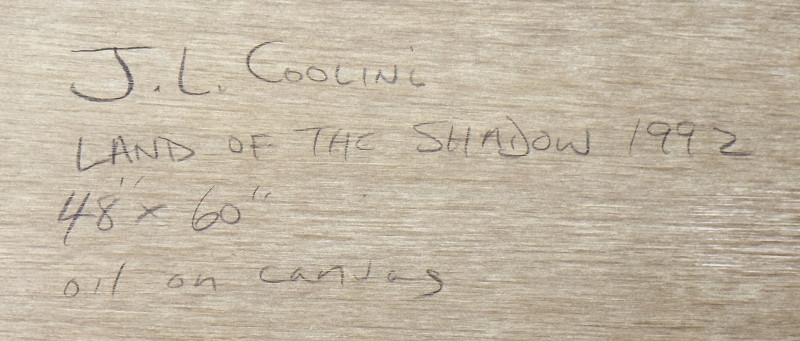 J.L. COOLING
LAND OF THE SHADOW 1992
48" x 60"
oil on canvas